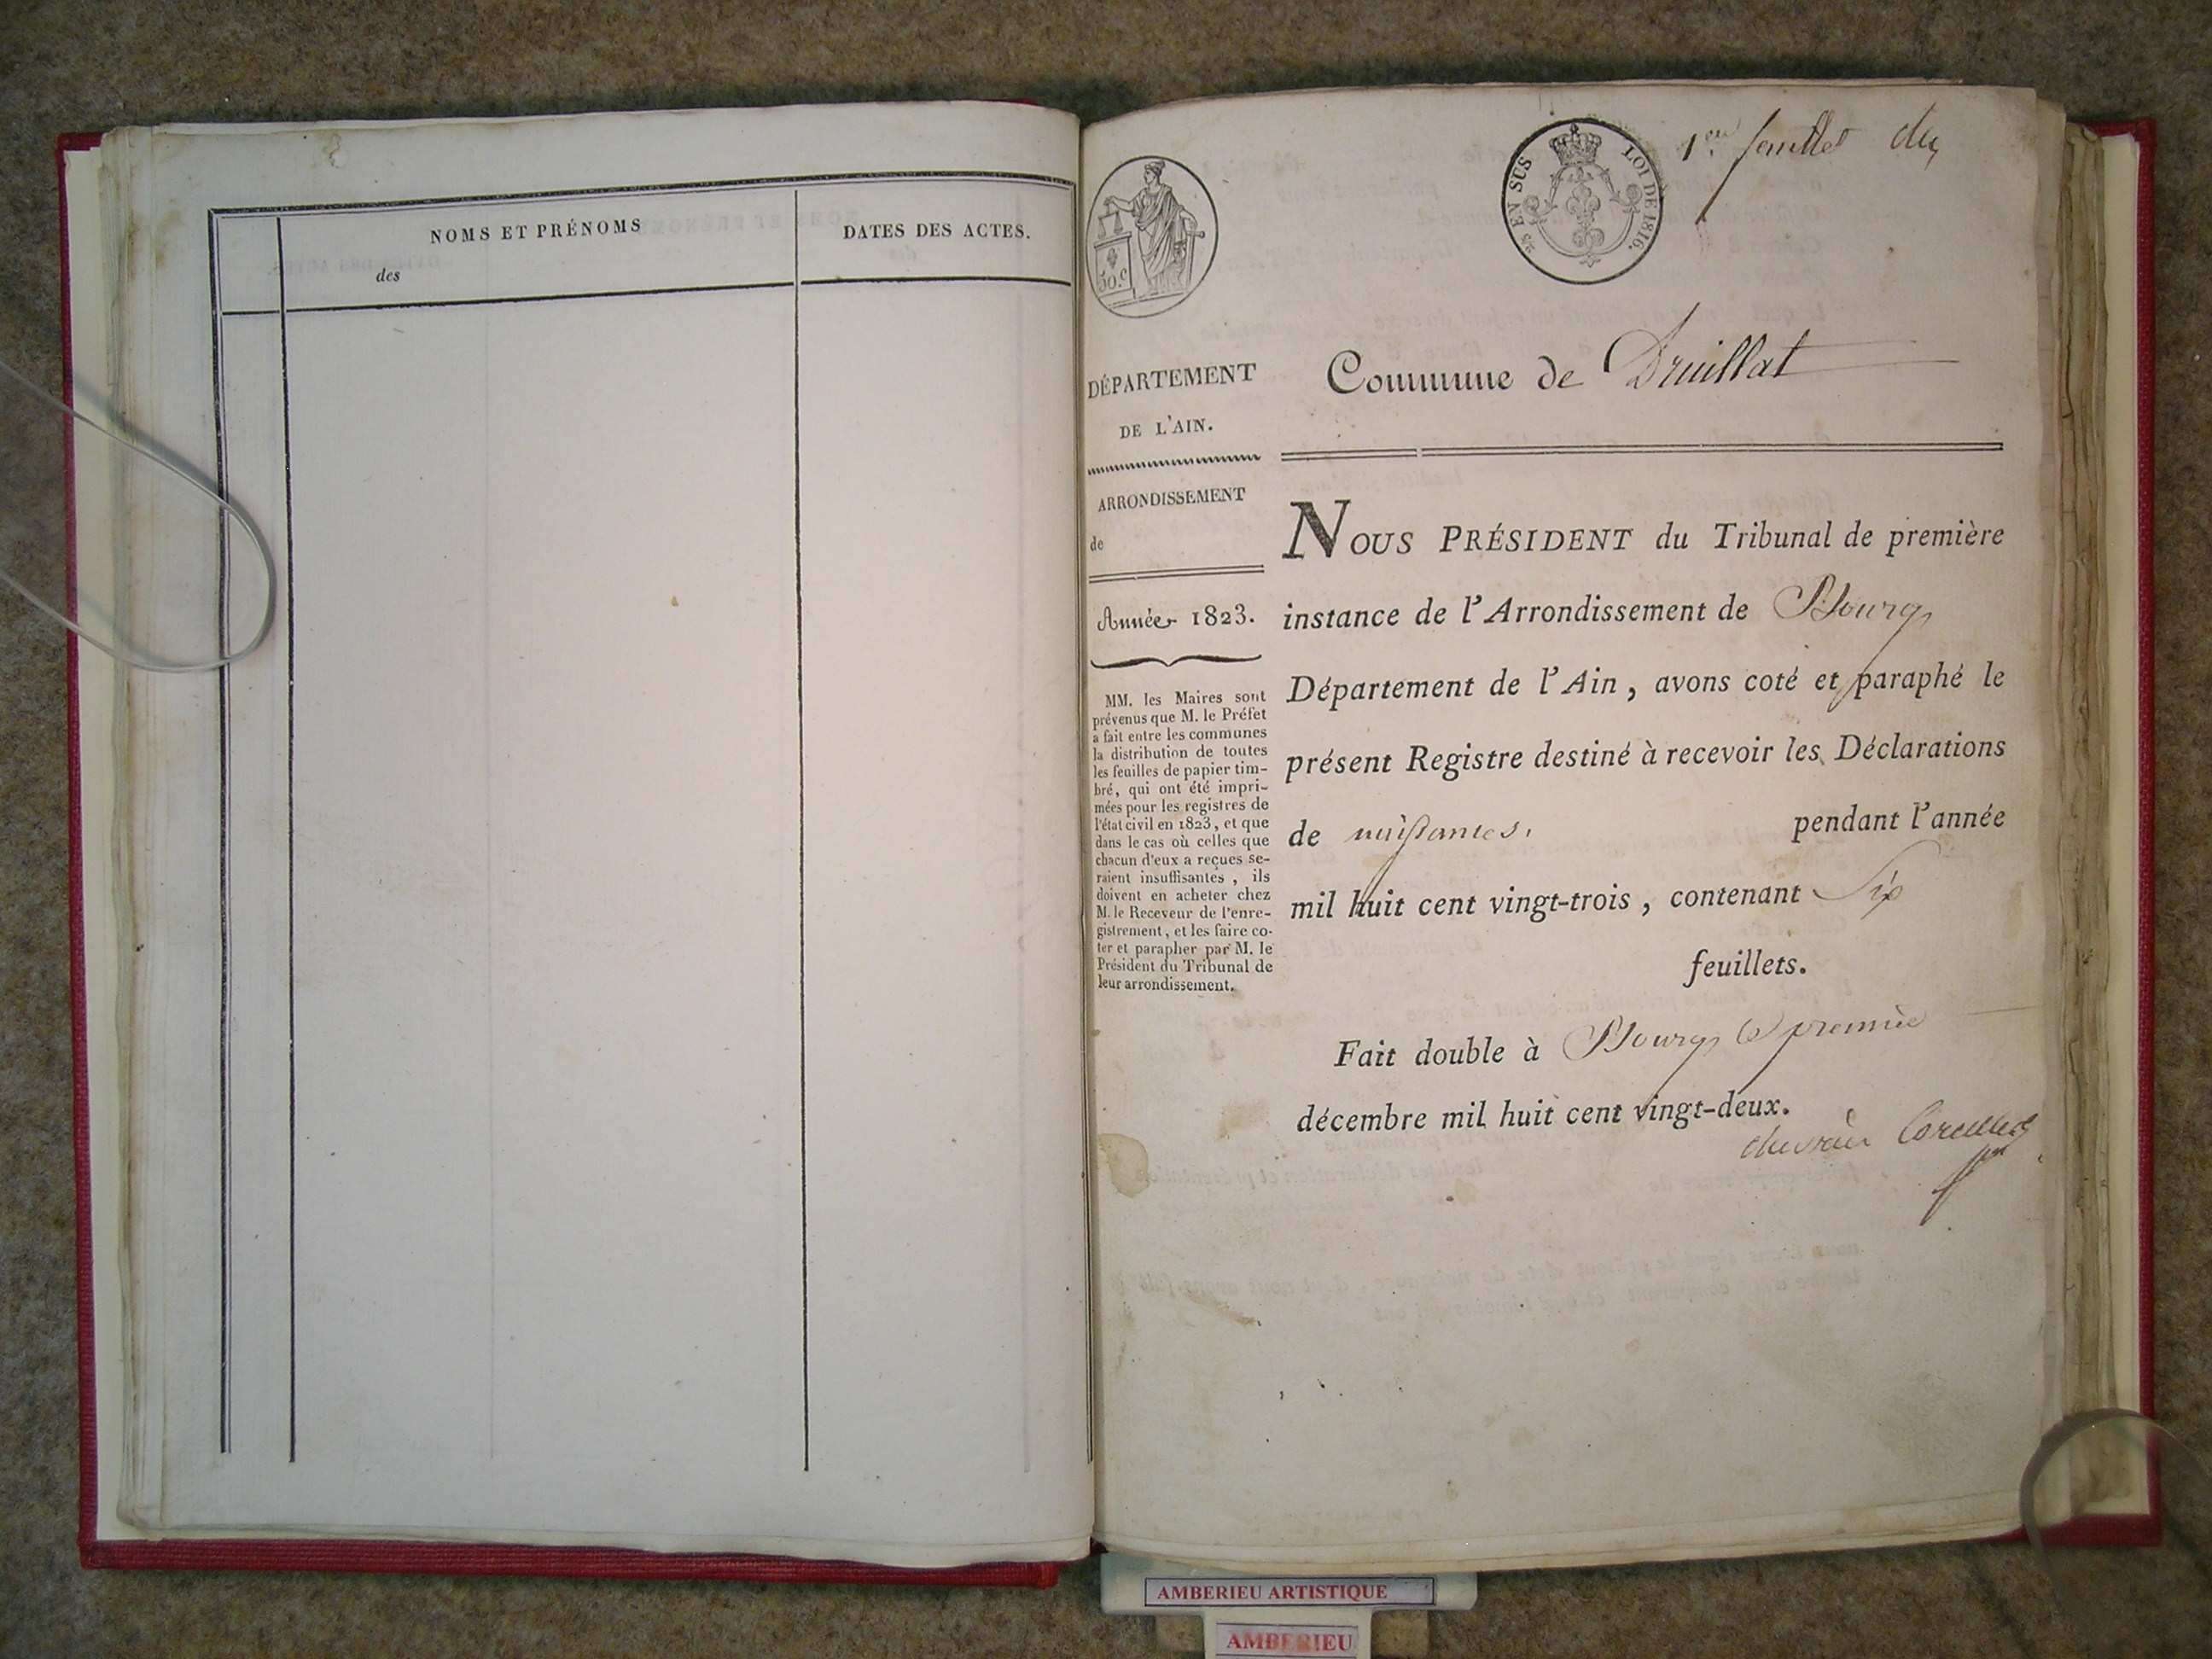 NOMS ET PRÉNOMS
des
DATES DES ACTES.
50 c
25 EN SUS
LOI DE 1816.
1er feuillet
DÉPARTEMENT
DE L'AIN.
ARRONDISSEMENT
de
Année 1823.
MM. les Maires sont
prévenus que M. le Préfet
a fait entre les communes
la distribution de toutes
les feuilles de papier tim-
bré, qui ont été impri-
mées pour les registres de
l'état civil en 1823, et que
dans le cas où celles que
chacun d'eux a reçues se-
raient insuffisantes, ils
doivent en acheter chez
M. le Receveur de l'enre-
gistrement, et les faire co-
ter et parapher par M. le
Président du Tribunal de
leur arrondissement.
Commune de Druillat
NOUS PRÉSIDENT du Tribunal de première
instance de l'Arrondissement de Bourg
Département de l'Ain, avons coté et paraphé le
présent Registre destiné à recevoir les Déclarations
de naissances. pendant l'année
mil huit cent vingt-trois, contenant Six
feuillets.
Fait double à Bourg le premier
décembre mil huit cent vingt-deux.
AMBERIEU ARTISTIQUE
AMBERIEU